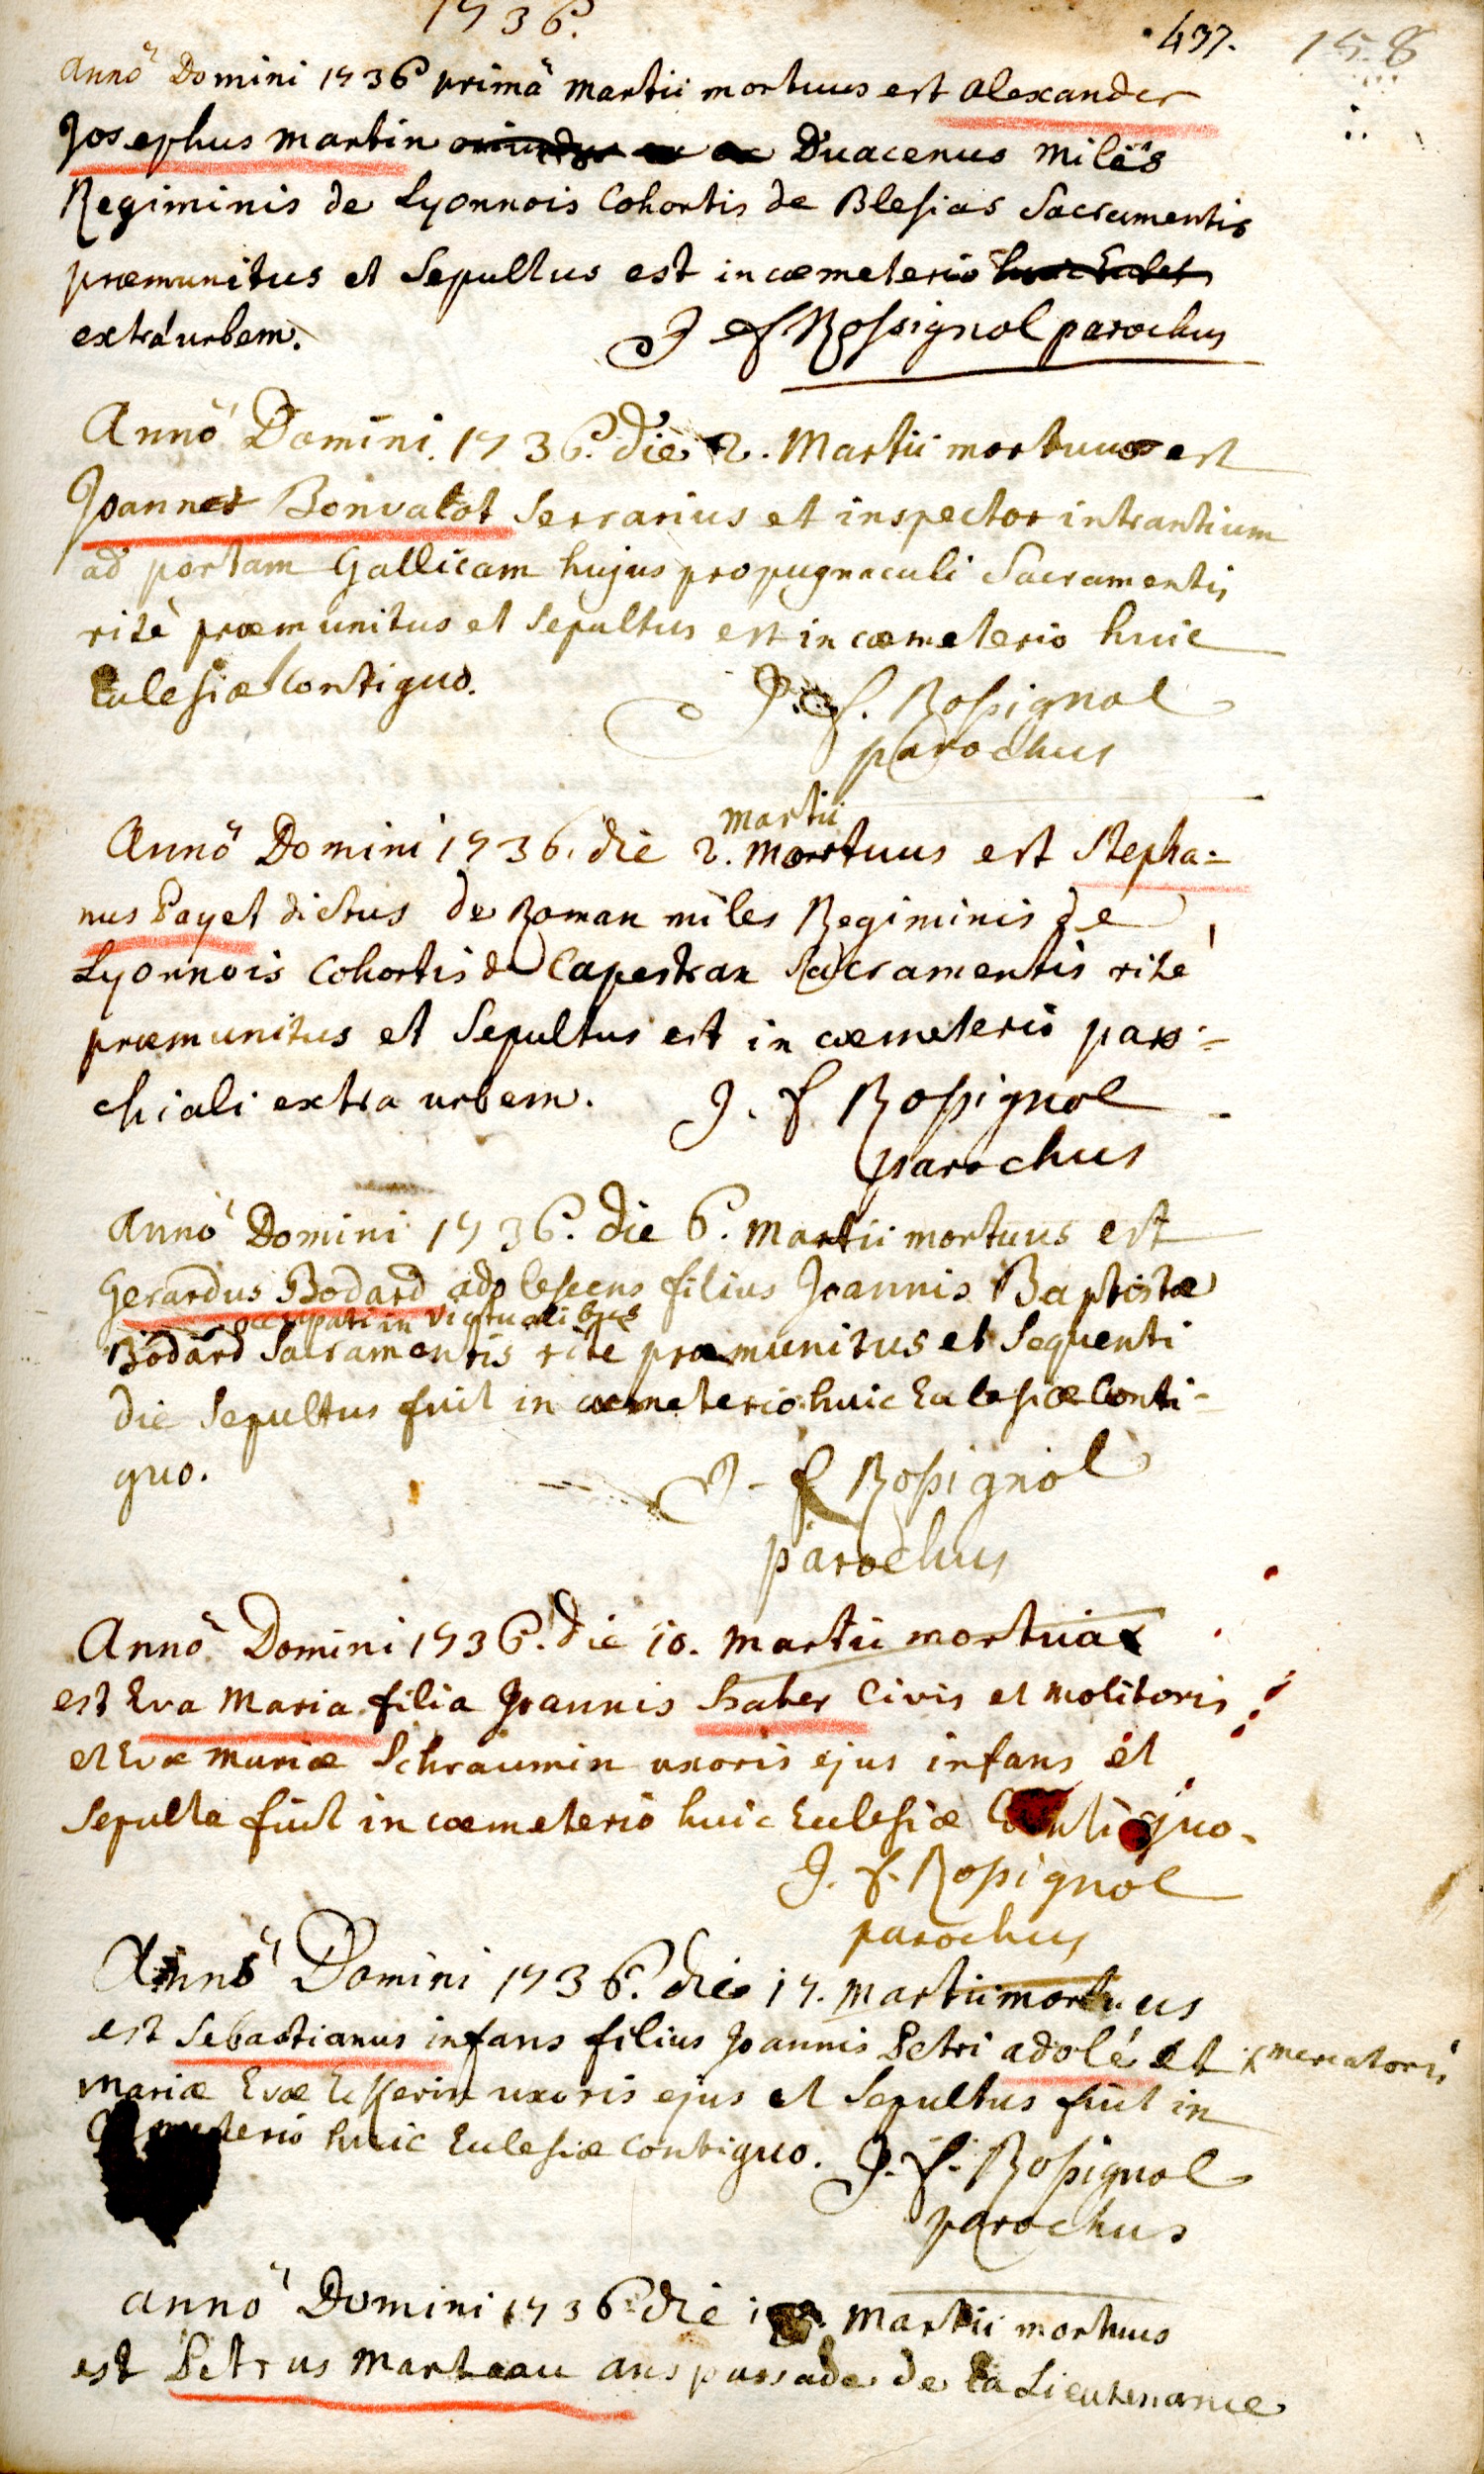 1736.
437. 158
Annô Domini 1736 primâ Martii mortuus est Alexander
Josephus Martin Duacenus miles
Regiminis de Lyonnois Cohortis de Blesias Sacramentis
præmunitus et Sepultus est in cœmeterio
extrá urbem. J f Rossignol parochus
Annô Domini 1736. die 2. Martii mortuus est
Joannes Bonvalot Serrarius et inspector intrantium
ad portam Gallicam hujus propugnaculi Sacramentis
ritè præmunitus et Sepultus est in cœmeterio huic
Eclesiæ Contiguo. J. f. Rossignol
parochus
Martii
Annô Domini 1736. die 2. mortuus est Stepha=
nus Payet dictus de Roman miles Regiminis de
Lyonnois Cohortis de Capestran Sacramentis rité
præmunitus et Sepultus est in cœmeterio paro=
chiali extra urbem. J. f Rossignol
parochus
Annô Domini 1736. die 6. Martii mortuus est
Gerardus Bodard adolescens filius Joannis Baptistæ
occupati in victualibus
Bodard Sacramentis rite præmunitus et Sequenti
die Sepultus fuit in cœmeterio huic Eclesiæ Conti=
guo. J. f Rossignol
parochus
Annô Domini 1736. die 10. Martii mortua
est Eva Maria filia Joannis Haber Civis et molitoris
et Evæ Mariæ Schraumin uxoris ejus infans et
Sepulta fuit in cœmeterio huic Eclesiæ Contiguo.
J. f. Rossignol
parochus
Annô Domini 1736. die 17. Martii mortuus
est Sebastianus infans filius Joannis Petri adolé et × mercatoris
Mariæ Evæ uxoris ejus et Sepultus fuit in
cœmeterio huic Eclesiæ Contiguo. J. f. Rossignol
parochus
Annô Domini 1736 die Martii mortuus
est Petrus Marteau anspassade de la Lieutenance